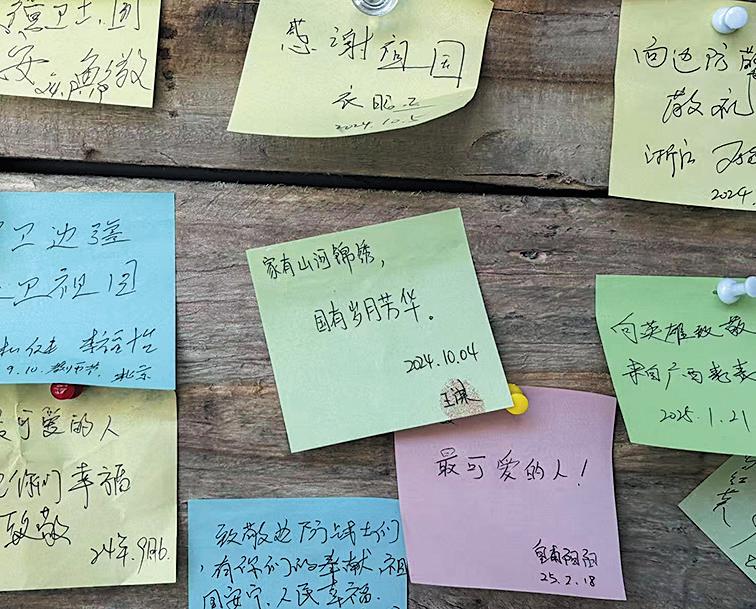 德卫士,国
安
致敬
感谢祖国
2024.10.5
向边防
敬礼
浙江
2024.
卫边疆
卫祖国
北京
家有山河锦绣,
国有岁月芳华。
2024.10.04
王谋
向英雄致敬
来自广西老表
2025.1.21
可爱的人
你们幸福
致敬
24年.9月6.
最可爱的人!
25.2.18
致敬边防战士们
,有你们的奉献,祖
国安宁.人民幸福.